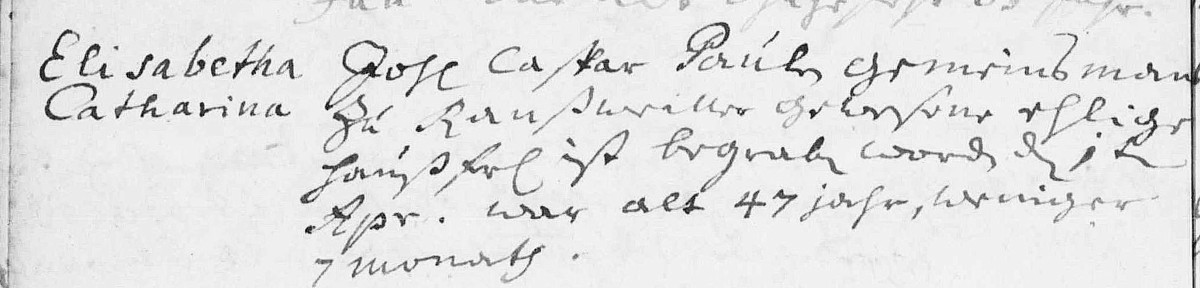 Elisabetha Catharina
Joh Caspar Pauls gemeinsman
zu Ranßweiller gewesene ehlige
haußfr ist begrab word d 1t
Apr. war alt 47 jahr, weniger
7 monath.